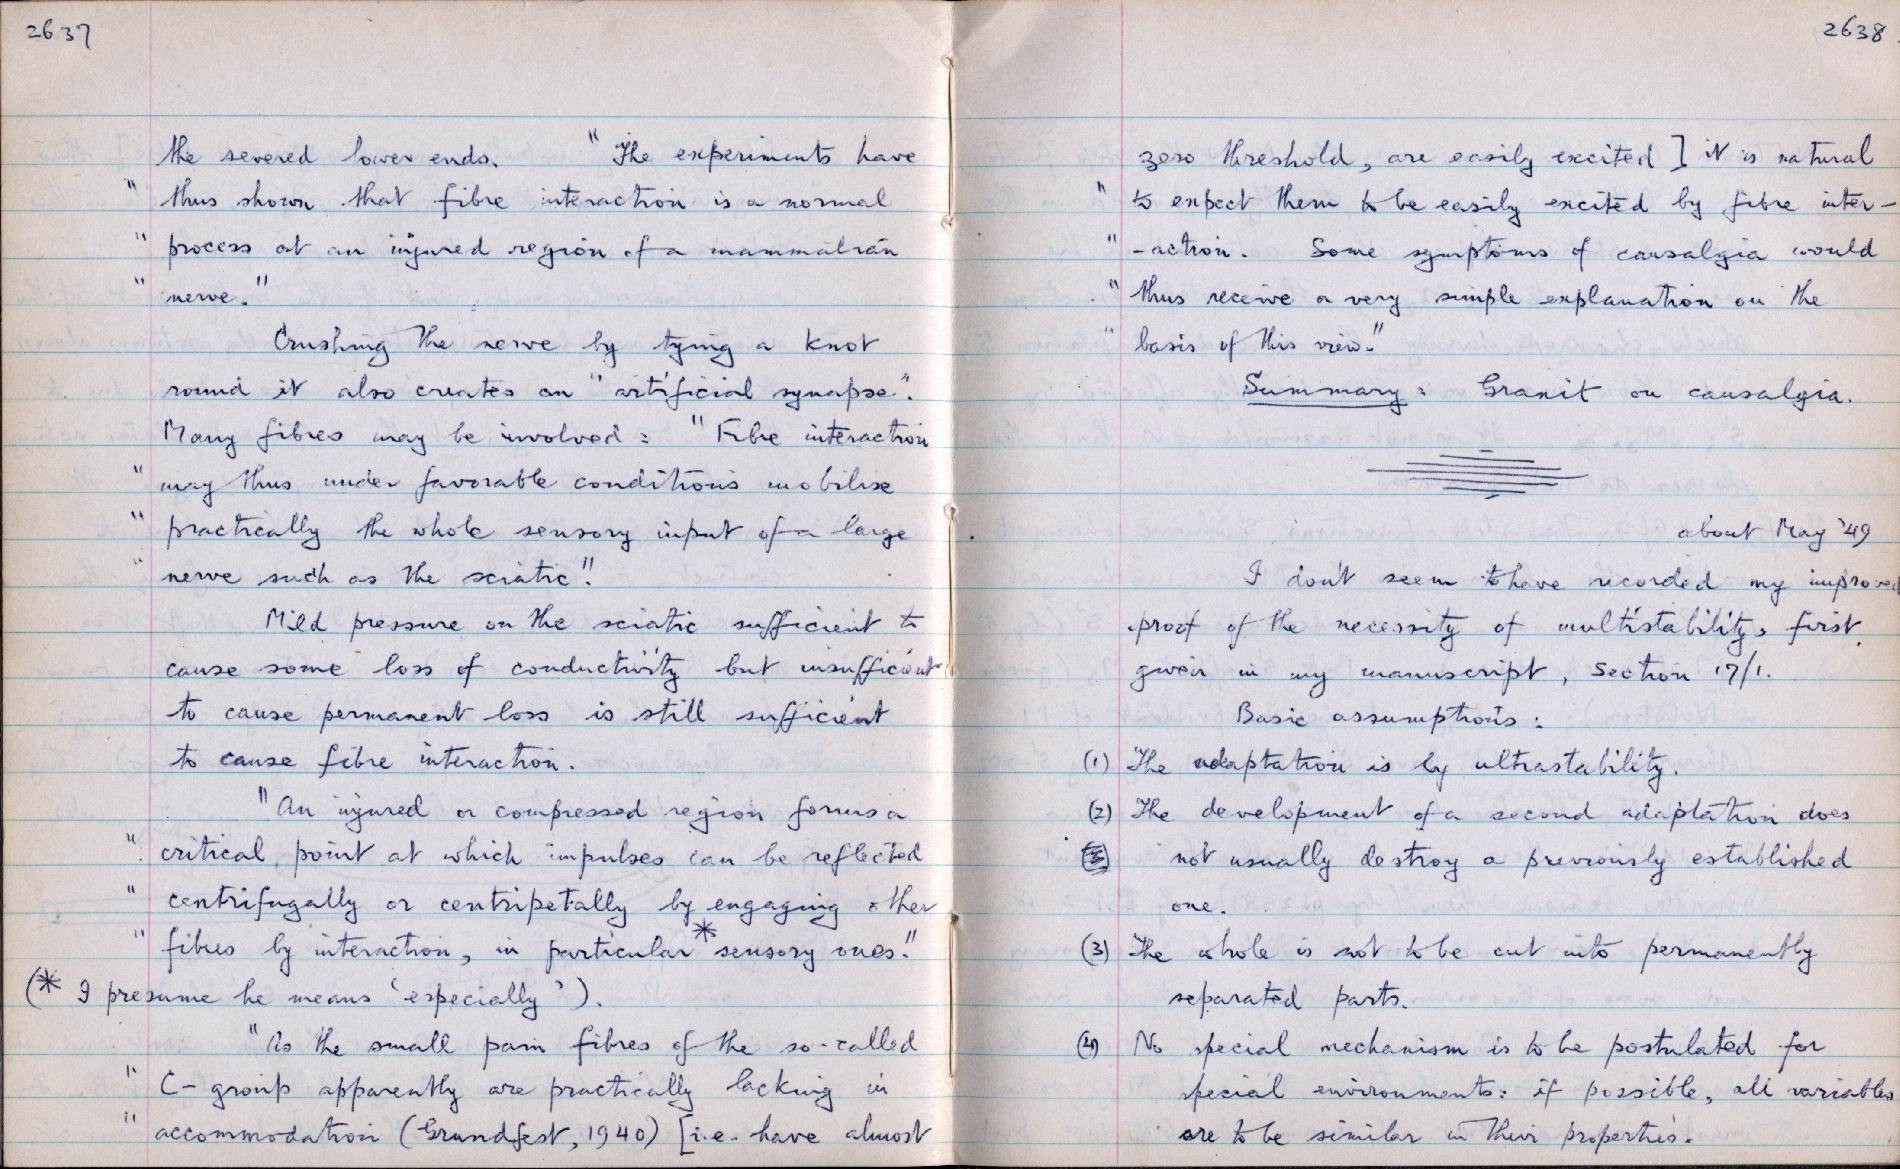 2637
the severed lower ends. "The experiments have
" thus shown that fibre interaction is a normal
" process at an injured region of a mammalian
" nerve."
Crushing the nerve by tying a knot
round it also creates an "artificial synapse".
Many fibres may be involved: "Fibre interaction
" may thus under favorable conditions mobilise
" practically the whole sensory input of a large
" nerve such as the sciatic".
Mild pressure on the sciatic sufficient to
cause some loss of conductivity but insufficient
to cause permanent loss is still sufficient
to cause fibre interaction.
"An injured or compressed region forms a
" critical point at which impulses can be reflected
" centrifugally or centripetally by engaging other
" fibres by interaction, in particular* sensory ones."
(* I presume he means 'especially').
"As the small pain fibres of the so-called
" C-group apparently are practically lacking in
" accommodation (Grundfest, 1940) [i.e. have almost
2638
zero threshold, are easily excited] it is natural
" to expect them to be easily excited by fibre inter-
" -action. Some symptoms of causalgia would
" thus receive a very simple explanation on the
" basis of this view."
Summary: Granit on causalgia.
about May '49
I don't seem to have recorded my improved
proof of the necessity of multistability, first
given in my manuscript, Section 17/1.
Basic assumptions:
(1) The adaptation is by ultrastability.
(2) The development of a second adaptation does
not usually destroy a previously established
one.
(3) The whole is not to be cut into permanently
separated parts.
(4) No special mechanism is to be postulated for
special environments: if possible, all variables
are to be similar in their properties.